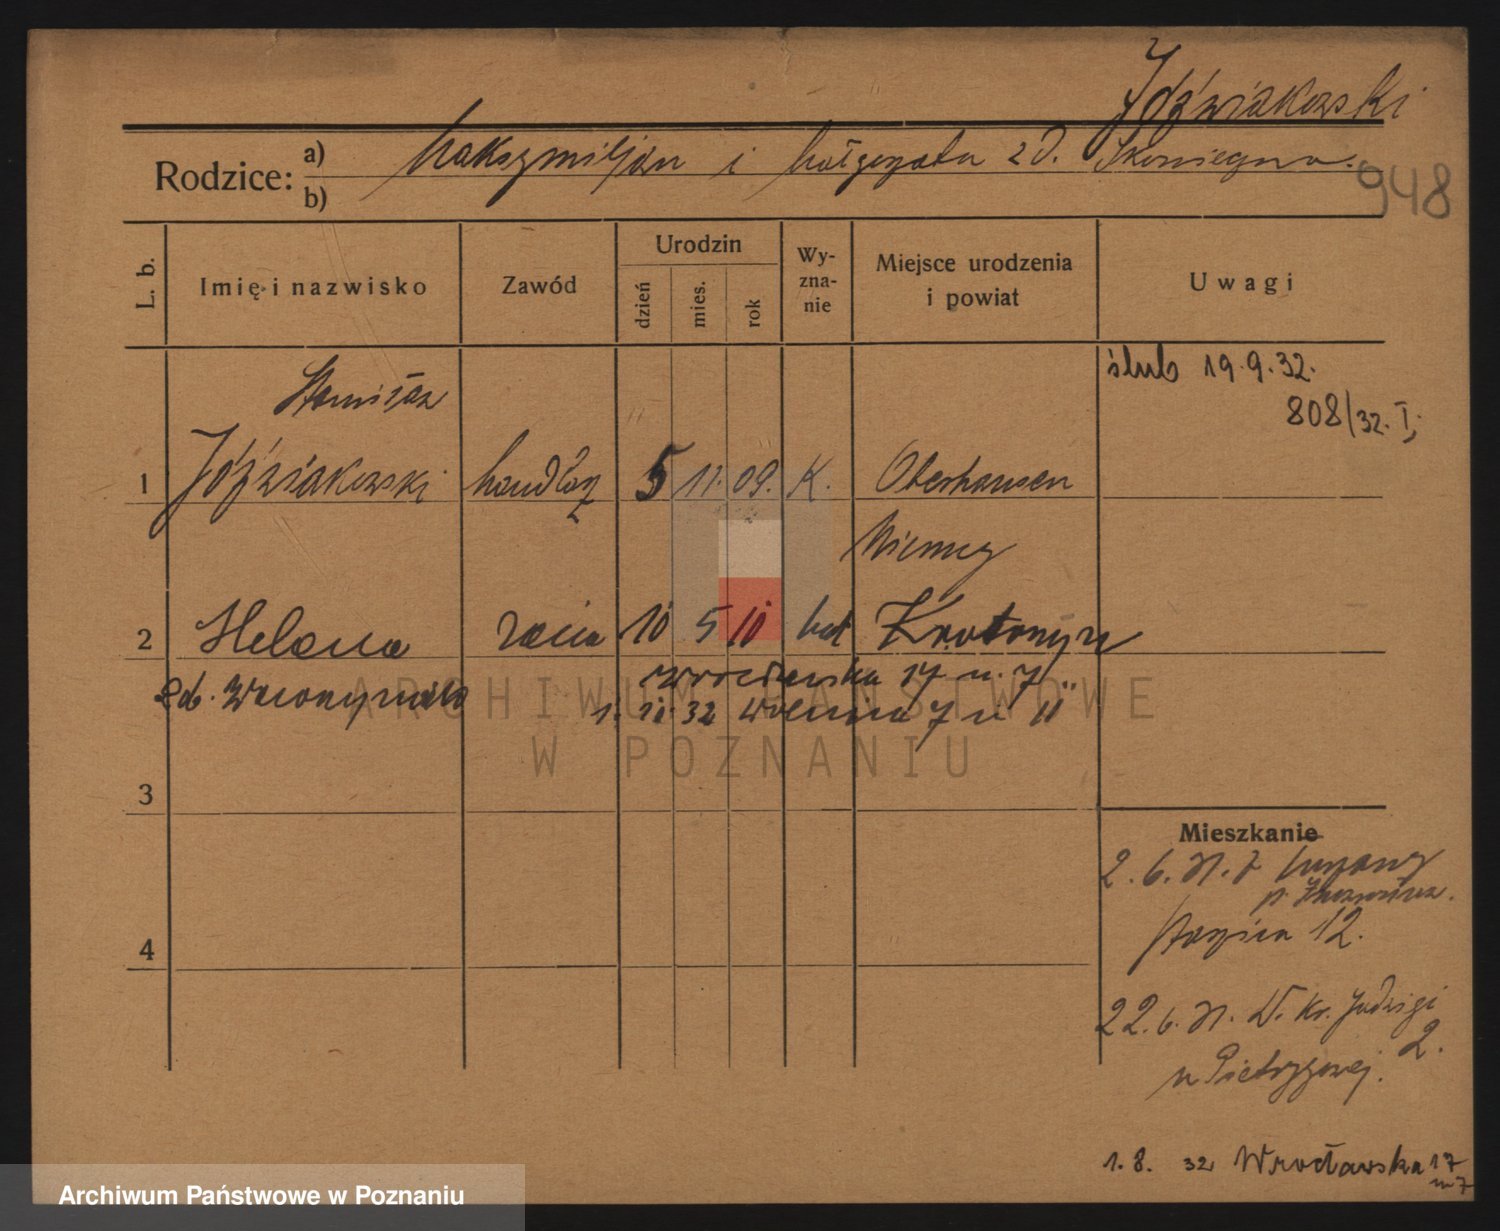 Jóźwiakowski
Rodzice: a) Maksymiljan i Małgorzata z d.
b)
948
L. b.
Imię i nazwisko
Zawód
Urodzin
dzień
mies.
rok
Wy-
zna-
nie
Miejsce urodzenia
i powiat
Uwagi
ślub 19.9.32.
808/32. I,
Stanisław
1 Jóźwiakowski handlarz 5 11. 09. K. Oberhausen
Niemcy
2 Helena żona 10 5 10 kat Krotoszyn
zd.
Wrocławska 17 m. 7
1. 11. 32 Wolnica 7 m 11
3
Mieszkanie
2. 6. 31. z
12.
4
22. 6. 31. Kr. Jadwigi
2.
u
1. 8. 32 Wrocławska 17
m 7
ARCHIWUM PAŃSTWOWE
W POZNANIU
Archiwum Państwowe w Poznaniu